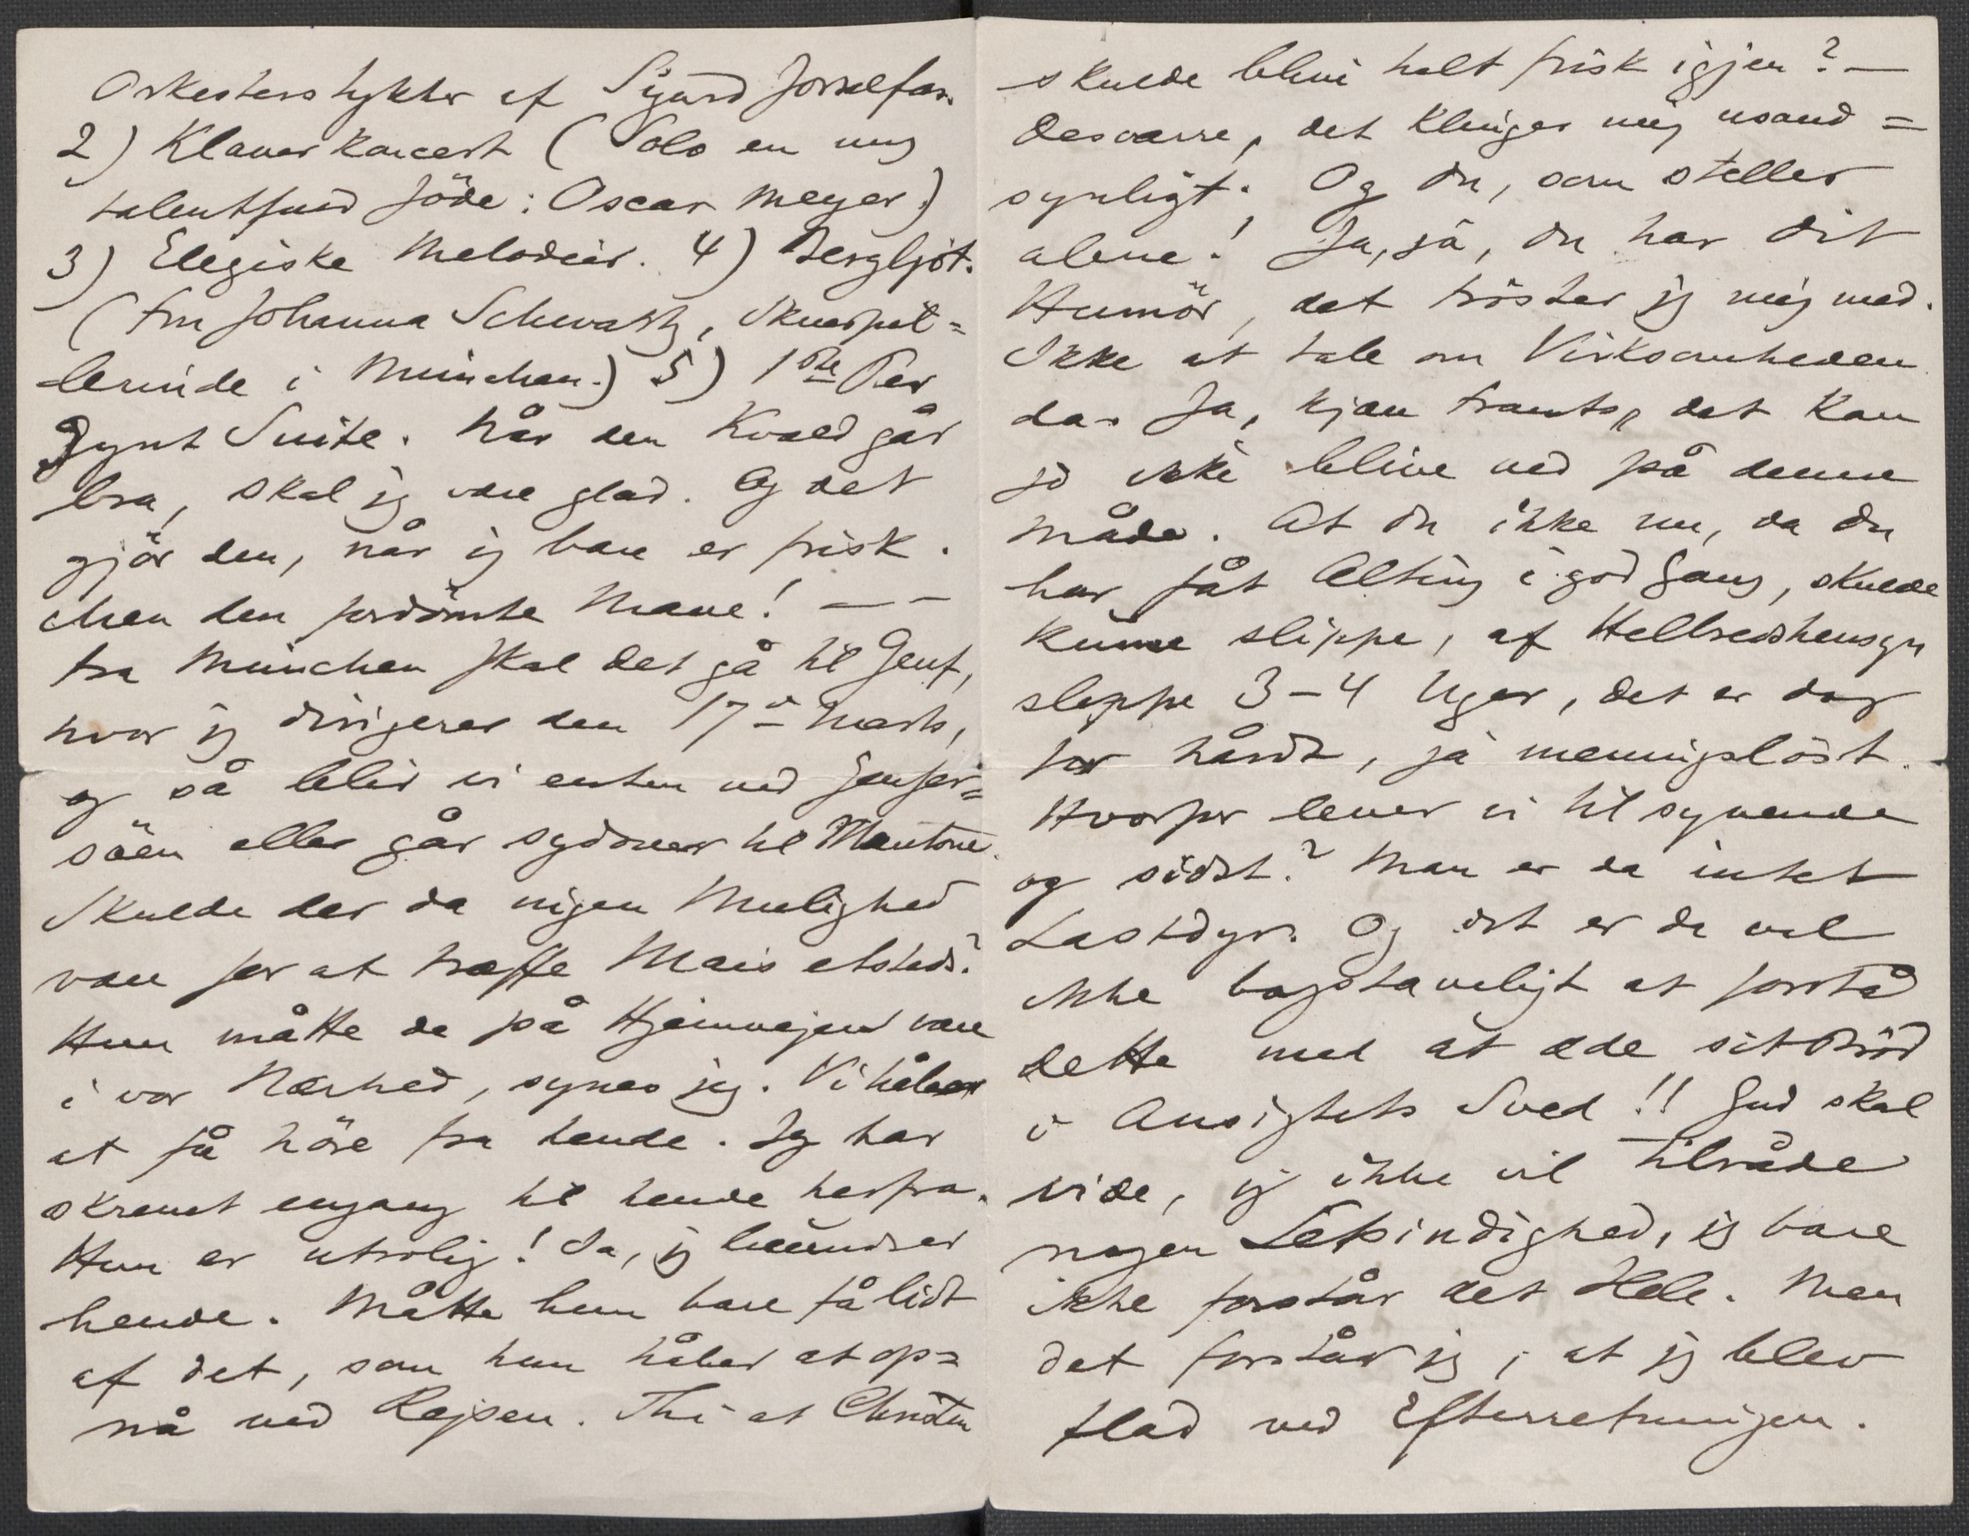 Orkesterstykker af Sigurd Jorsalfar.
2) Klaverkoncert (Solo en ung
talentfuld Jöde: Oscar Meyer.)
3) Elegiske Melodier. 4) Bergljot.
(Fru Johanna Schwartz, Skuespil=
lerinde i München.) 5) 1ste Peer
Gynt Suite. Når den Kvæld går
bra, skal jeg være glad. Og det
gjör den, når jeg bare er frisk.
Men den fordömte Mave! — —
Fra München skal det gå til Genf,
hvor jeg dirigerer den 17de Marts,
og så blir vi enten ved Genfer=
söen eller går sydover til Mentone.
Skulde der da ingen Mulighed
være for at træffe Mais etsteds?
Hun måtte da på Hjemvejen være
i vor Nærhed, synes jeg. Vi håber
at få höre fra hende. Jeg har
skrevet engang til hende herfra.
Hun er utrolig! Ja, jeg beundrer
hende. Måtte hun bare få lidt
af det, som hun håber at op=
nå ved Rejsen. Thi at Christen
skulde blive helt frisk igjen? —
Desværre, det klinger mig usand=
synligt. Og du, som steller
alene! Ja, ja, du har dit
Humör, det tröster jeg mig med.
Ikke at tale om Virksomheden
da. Ja, kjære Frants, det kan
jo ikke blive ved på denne
måde. At du ikke nu, da du
har fåt Alting i god Gang, skulde
kunne slippe, af Helbredshensyn
slippe 3–4 Uger, det er dog
for hårdt, ja meningslöst.
Hvorfor lever vi til syvende
og sidst? Man er da intet
Lastdyr. Og det er da vel
ikke bogstaveligt at forstå
dette med at æde sit Bröd
i Ansigtets Sved!! Gud skal
vide, jeg ikke vil tilråde
nogen Letsindighed, jeg bare
ikke forstår det Hele. Men
det forstår jeg, at jeg blev
flad ved Efterretningen.